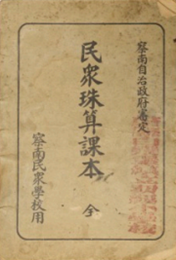 察南自治政府審定
民衆珠算課本 全
察南民衆學校用